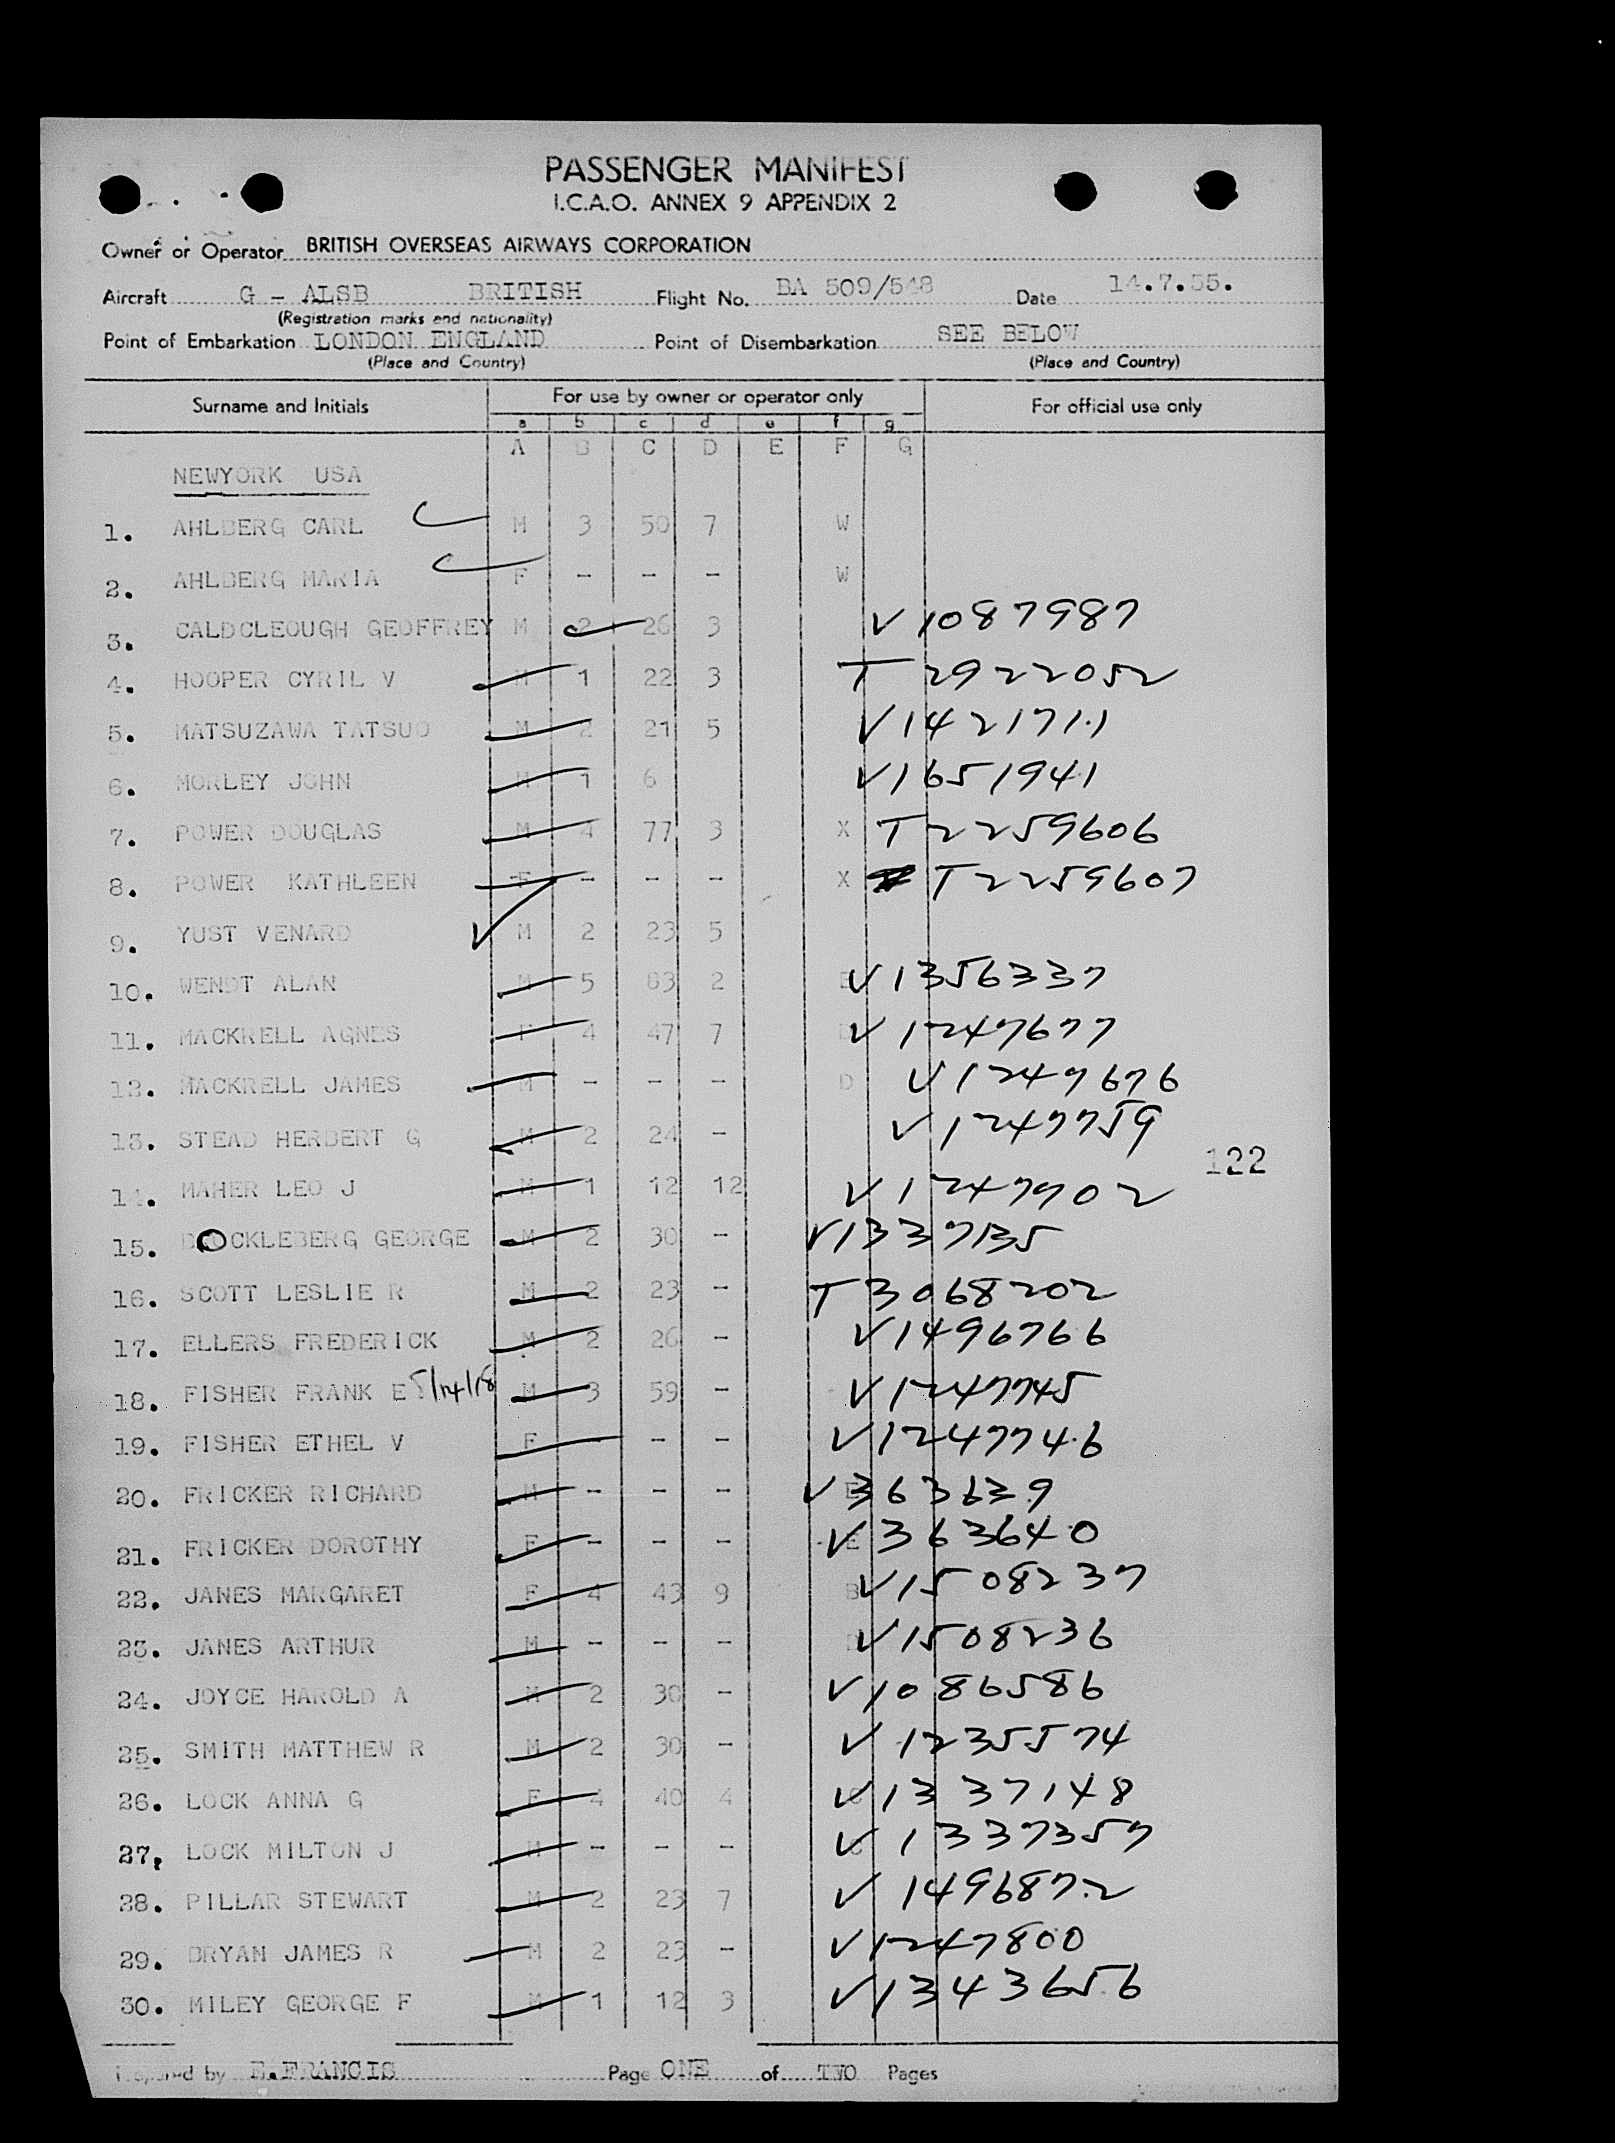 PASSENGER MANIFEST
I.C.A.O. ANNEX 9 APPENDIX 2
Owner or Operator BRITISH OVERSEAS AIRWAYS CORPORATION
Aircraft G - ALSB BRITISH Flight No. BA 509/548 Date 14.7.55.
(Registration marks and nationality)
Point of Embarkation LONDON ENGLAND Point of Disembarkation SEE BELOW
(Place and Country) (Place and Country)
Surname and Initials For use by owner or operator only For official use only
a b c d e f g
A B C D E F G
NEWYORK USA
1. AHLBERG CARL M 3 50 7 W
2. AHLBERG MARIA F - - - W
3. CALDCLEOUGH GEOFFREY M 2 26 3 V1087987
4. HOOPER CYRIL V M 1 22 3 T2922052
5. MATSUZAWA TATSUO M 2 21 5 V1421711
6. MORLEY JOHN M 1 6 V1651941
7. POWER DOUGLAS M 4 77 3 X T2259606
8. POWER KATHLEEN F - - - X T2259607
9. YUST VENARD M 2 23 5
10. WENDT ALAN M 5 63 2 E V1356337
11. MACKRELL AGNES F 4 47 7 V1247677
12. MACKRELL JAMES M - - - D V1247676
13. STEAD HERBERT G M 2 24 - V1247759
122
14. MAHER LEO J M 1 12 12 V1247702
15. BROCKLEBERG GEORGE M 2 30 - V1337135
16. SCOTT LESLIE R M 2 23 - T3068202
17. ELLERS FREDERICK M 2 26 - V1496766
18. FISHER FRANK E 5/14/18 M 3 59 - V1247745
19. FISHER ETHEL V F - - V1247746
20. FRICKER RICHARD M - - - E V363639
21. FRICKER DOROTHY F - - - E V363640
22. JANES MARGARET F 4 43 9 B V1508237
23. JANES ARTHUR M - - - V1508236
24. JOYCE HAROLD A M 2 30 - V1086586
25. SMITH MATTHEW R M 2 30 - V1235574
26. LOCK ANNA G F 4 40 4 C V1337148
27. LOCK MILTON J M - - - C V1337357
28. PILLAR STEWART M 2 23 7 V1496872
29. BRYAN JAMES R M 2 23 - V1247800
30. MILEY GEORGE F M 1 12 3 V1343656
Prepared by E.FRANCIS Page ONE of TWO Pages